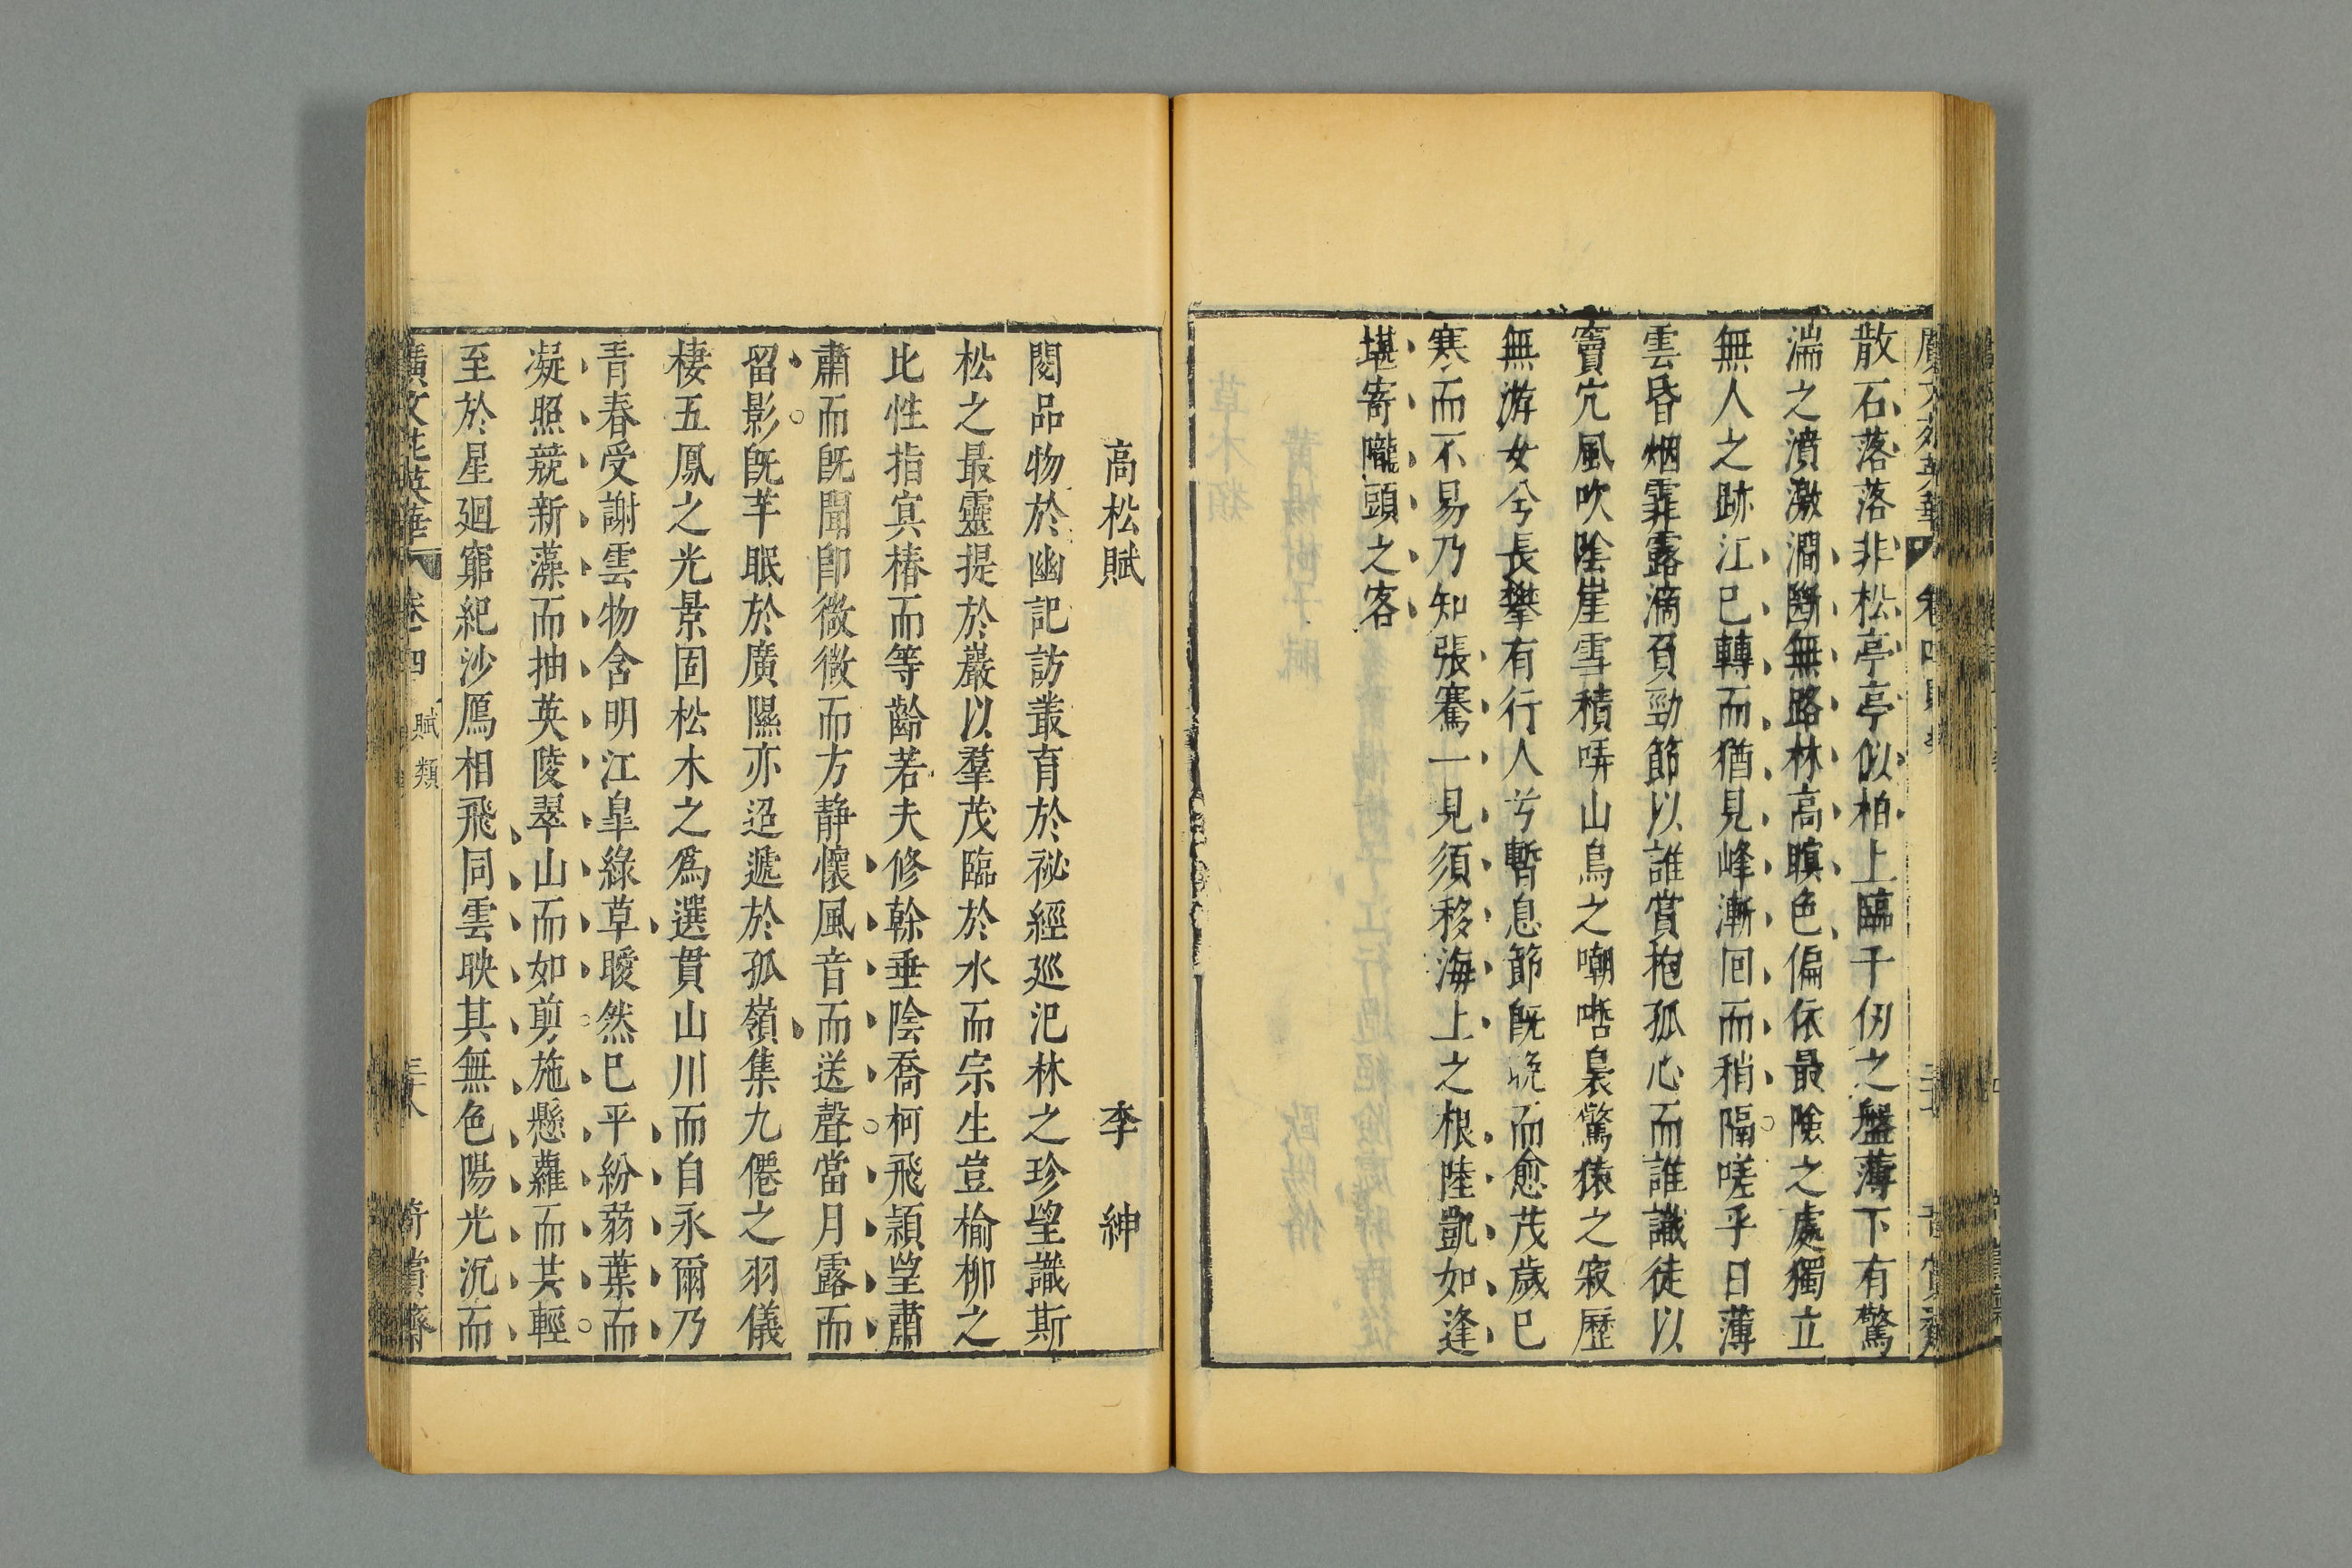 散石落落非松亭亭似柏上臨千仞之盤薄下有驚
湍之濆激澗斷無路林高暝色偏依最險之處獨立
無人之跡江已轉而猶見峰漸囘而稍隔嗟乎日薄
雲昏烟霏露滴負勁節以誰賞抱孤心而誰識徒以
竇穴風吹陰崖雪積哢山鳥之嘲哳裊驚猿之寂歷
無游女兮長攀有行人兮暫息節既晚而愈茂歲已
寒而不易乃知張騫一見須移海上之根陸凱如逢
堪寄隴頭之客
高松賦 李紳
閱品物於幽記訪叢育於祕經巡汜林之珍望識斯
松之最靈提於巖以羣茂臨於水而宗生豈榆柳之
比性指寘椿而等齡若夫修榦垂陰喬柯飛穎望肅
肅而既閒卽微微而方静懷風音而送聲當月露而
留影既芊眠於廣隰亦迢遞於孤嶺集九僊之羽儀
棲五鳳之光景固松木之爲選貫山川而自永爾乃
青春受謝雲物含明江皐綠草曖然已平紛蒻葉而
凝照競新藻而抽英陵翠山而如剪施懸蘿而共輕
至於星廻窮紀沙鴈相飛同雲映其無色陽光沉而
廣文苑英華 卷四 賦類 三十八